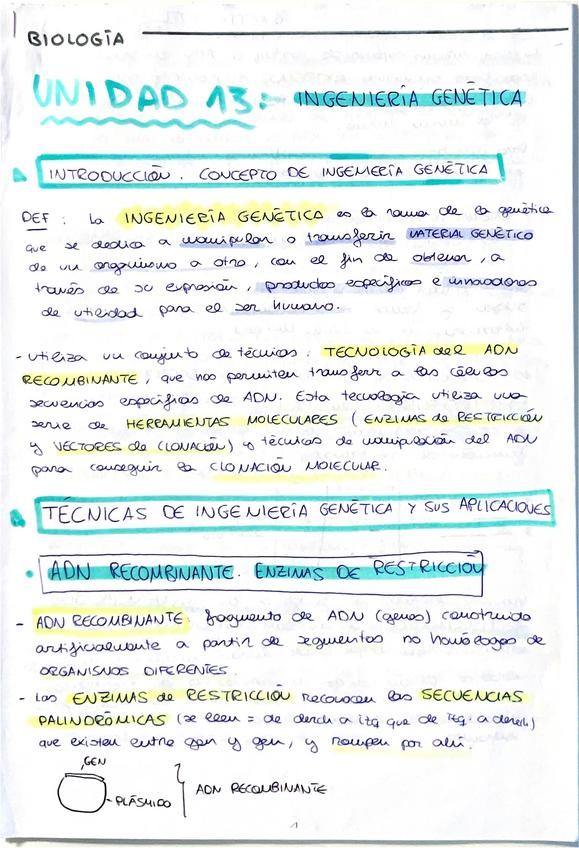 BIOLOGÍA
UNIDAD 13:- INGENIERÍA GENÉTICA
INTRODUCCIÓN. CONCEPTO DE INGENIERÍA GENÉTICA
DEF: La INGENIERÍA GENÉTICA es la rama de la genética
que se dedica a manipular o transferir MATERIAL GENÉTICO
de un organismo a otro, con el fin de obtener, a
través de su expresión, productos específicos e innovadores
de utilidad para el ser humano.
- Utiliza un conjunto de técnicas: TECNOLOGÍA del ADN
RECOMBINANTE, que nos permiten transferir a las células
secuencias específicas de ADN. Esta tecnología utiliza una
serie de HERRAMIENTAS MOLECULARES (ENZIMAS de RESTRICCIÓN
y VECTORES de CLONACIÓN) y técnicas de manipulación del ADN
para conseguir la CLONACIÓN MOLECULAR.
TÉCNICAS DE INGENIERÍA GENÉTICA Y SUS APLICACIONES
• ADN RECOMBINANTE. ENZIMAS DE RESTRICCIÓN
- ADN RECOMBINANTE: fragmento de ADN (genes) construido
artificialmente a partir de segmentos no homólogos de
ORGANISMOS DIFERENTES.
- Las ENZIMAS de RESTRICCIÓN reconocen las SECUENCIAS
PALINDRÓMICAS (se leen = de derch a izq que de izq. a derch)
que existen entre gen y gen, y rompen por ahí.
GEN
PLÁSMIDO
ADN RECOMBINANTE
1